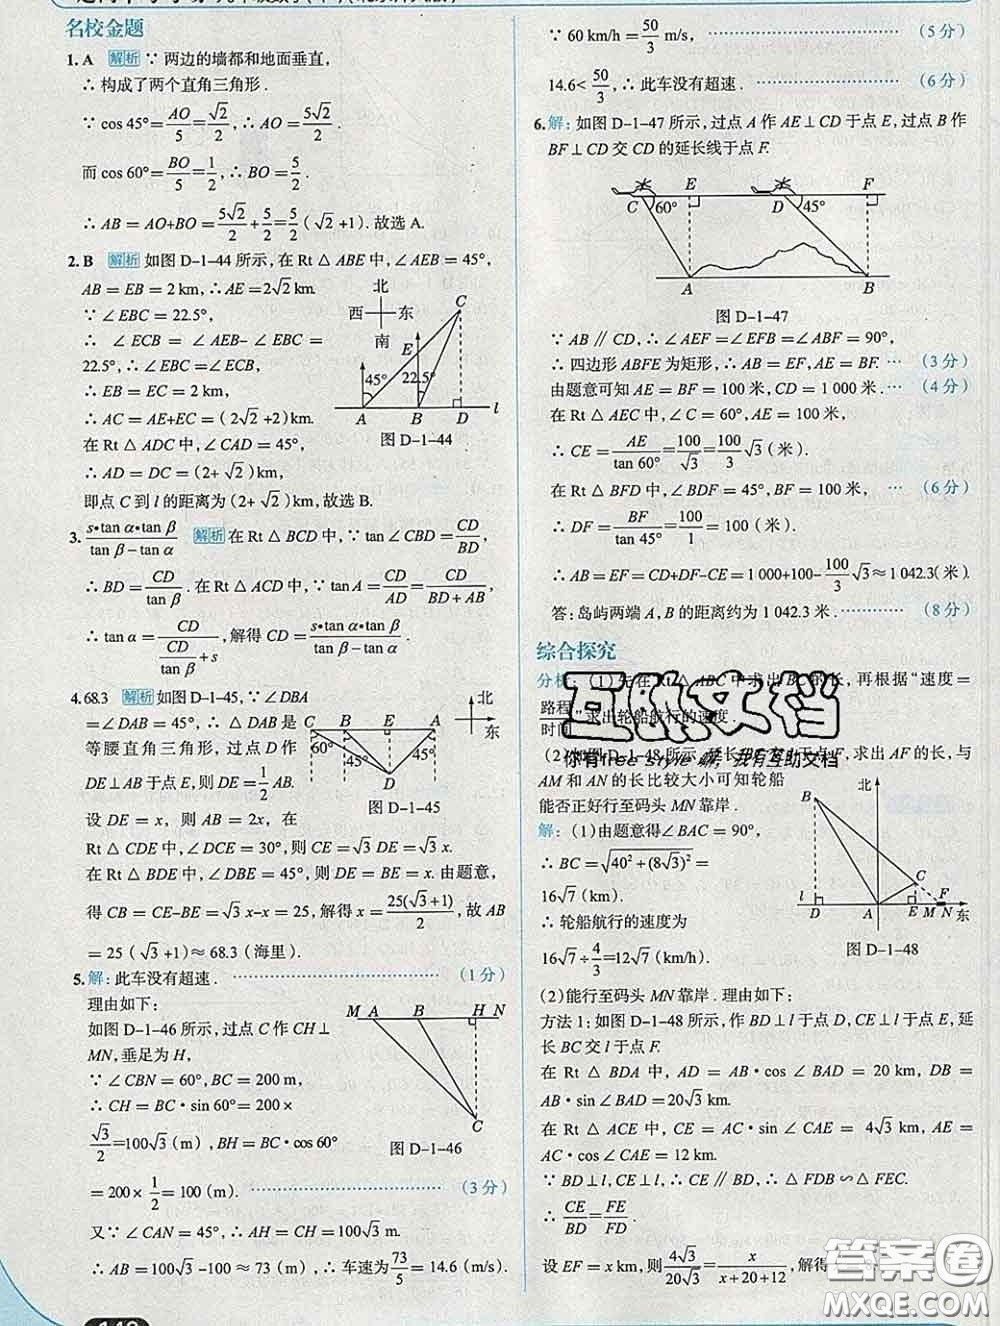 名校金题
1. A 解析 ∵ 两边的墙都和地面垂直,
∴ 构成了两个直角三角形.
∵ cos 45°=AO/5=√2/2, ∴ AO=5√2/2.
而 cos 60°=BO/5=1/2, ∴ BO=5/2.
∴ AB=AO+BO=5√2/2+5/2=5/2(√2+1).故选A.
2. B 解析 如图 D-1-44 所示,在 Rt△ABE 中,∠AEB=45°,
AB=EB=2 km,∴AE=2√2 km.
∵∠EBC=22.5°,
∴ ∠ECB=∠AEB-∠EBC=
22.5°,∴∠EBC=∠ECB,
∴ EB=EC=2 km,
∴ AC=AE+EC=(2√2+2)km.
在 Rt△ADC 中,∠CAD=45°,
∴ AD=DC=(2+√2)km,
即点 C 到 l 的距离为(2+√2)km,故选 B.
北
西 东
南
C
E
45° 22.5°
A B D l
图 D-1-44
3. s•tan α•tan β/(tan β-tan α) 解析 在 Rt△BCD 中,∵tan∠CBD=CD/BD,
∴BD=CD/tan β.在 Rt△ACD 中,∵tan A=CD/AD=CD/(BD+AB),
∴tan α=CD/(CD/tan β+s),解得 CD=s•tan α•tan β/(tan β-tan α)
4. 68.3 解析 如图 D-1-45,∵∠DBA
=∠DAB=45°,∴△DAB 是
等腰直角三角形,过点 D 作
DE⊥AB 于点 E,则 DE=1/2 AB.
设 DE=x,则 AB=2x,在
Rt△CDE 中,∠DCE=30°,则 CE=√3 DE=√3 x.
在 Rt△BDE 中,∠DBE=45°,则 DE=BE=x.由题意,
得 CB=CE-BE=√3 x-x=25,解得 x=25(√3+1)/2,故 AB
=25(√3+1)≈68.3(海里).
北
东
C B E A
60° 45° 45°
D
图 D-1-45
5. 解:此车没有超速. (1分)
理由如下:
如图 D-1-46 所示,过点 C 作 CH⊥
MN,垂足为 H,
∵∠CBN=60°,BC=200 m,
∴CH=BC•sin 60°=200×
√3/2=100√3(m),BH=BC•cos 60°
=200×1/2=100(m). (3分)
又∵∠CAN=45°,∴AH=CH=100√3(m).
∴AB=100√3-100≈73(m),∴车速为73/5=14.6(m/s).
M A B H N
C
图 D-1-46
∵60 km/h=50/3 m/s, (5分)
14.6<50/3,∴此车没有超速. (6分)
6. 解:如图 D-1-47 所示,过点 A 作 AE⊥CD 于点 E,过点 B 作
BF⊥CD 交 CD 的延长线于点 F.
E F
C 60° D 45°
A B
图 D-1-47
∵AB∥CD,∴∠AEF=∠EFB=∠ABF=90°,
∴四边形 ABFE 为矩形,∴AB=EF,AE=BF. … (3分)
由题意可知 AE=BF=100 米,CD=1 000 米. … (4分)
在 Rt△AEC 中,∠C=60°,AE=100 米,
∴CE=AE/tan 60°=100/√3=100/3 √3(米).
在 Rt△BFD 中,∠BDF=45°,BF=100 米, (6分)
∴DF=BF/tan 45°=100/1=100(米).
∴AB=EF=CD+DF-CE=1 000+100-100/3 √3≈1 042.3(米).
答:岛屿两端 A,B 的距离约为 1 042.3 米. (8分)
综合探究
分析:(1)先在 Rt△ABC 中求出 BC 的长,再根据“速度=
路程/时间”求出轮船航行的速度.
(2)如图 D-1-48 所示,延长 BC 交 l 于点 F,求出 AF 的长,与
AM 和 AN 的长比较大小可知轮船
能否正好行至码头 MN 靠岸.
解:(1)由题意得∠BAC=90°,
∴BC=√(40²+(8√3)²)=
16√7(km).
∴轮船航行的速度为
16√7÷4/3=12√7(km/h).
北
B
C
D A E M F N 东
l
图 D-1-48
(2)能行至码头 MN 靠岸.理由如下:
方法1:如图 D-1-48 所示,作 BD⊥l 于点 D,CE⊥l 于点 E,延
长 BC 交 l 于点 F.
在 Rt△BDA 中,AD=AB•cos∠BAD=20 km,DB=
AB•sin∠BAD=20√3 km.
在 Rt△ACE 中,CE=AC•sin∠CAE=4√3 km,AE=
AC•cos∠CAE=12 km.
∵BD⊥l,CE⊥l,∴CE∥BD,∴△FDB∽△FEC,
∴CE/BD=FE/FD.
设 EF=x km,则4√3/20√3=x/(x+20+12),解得
互助文档
你有free style嘛,我有互助文档
答案圈
MXQE.COM